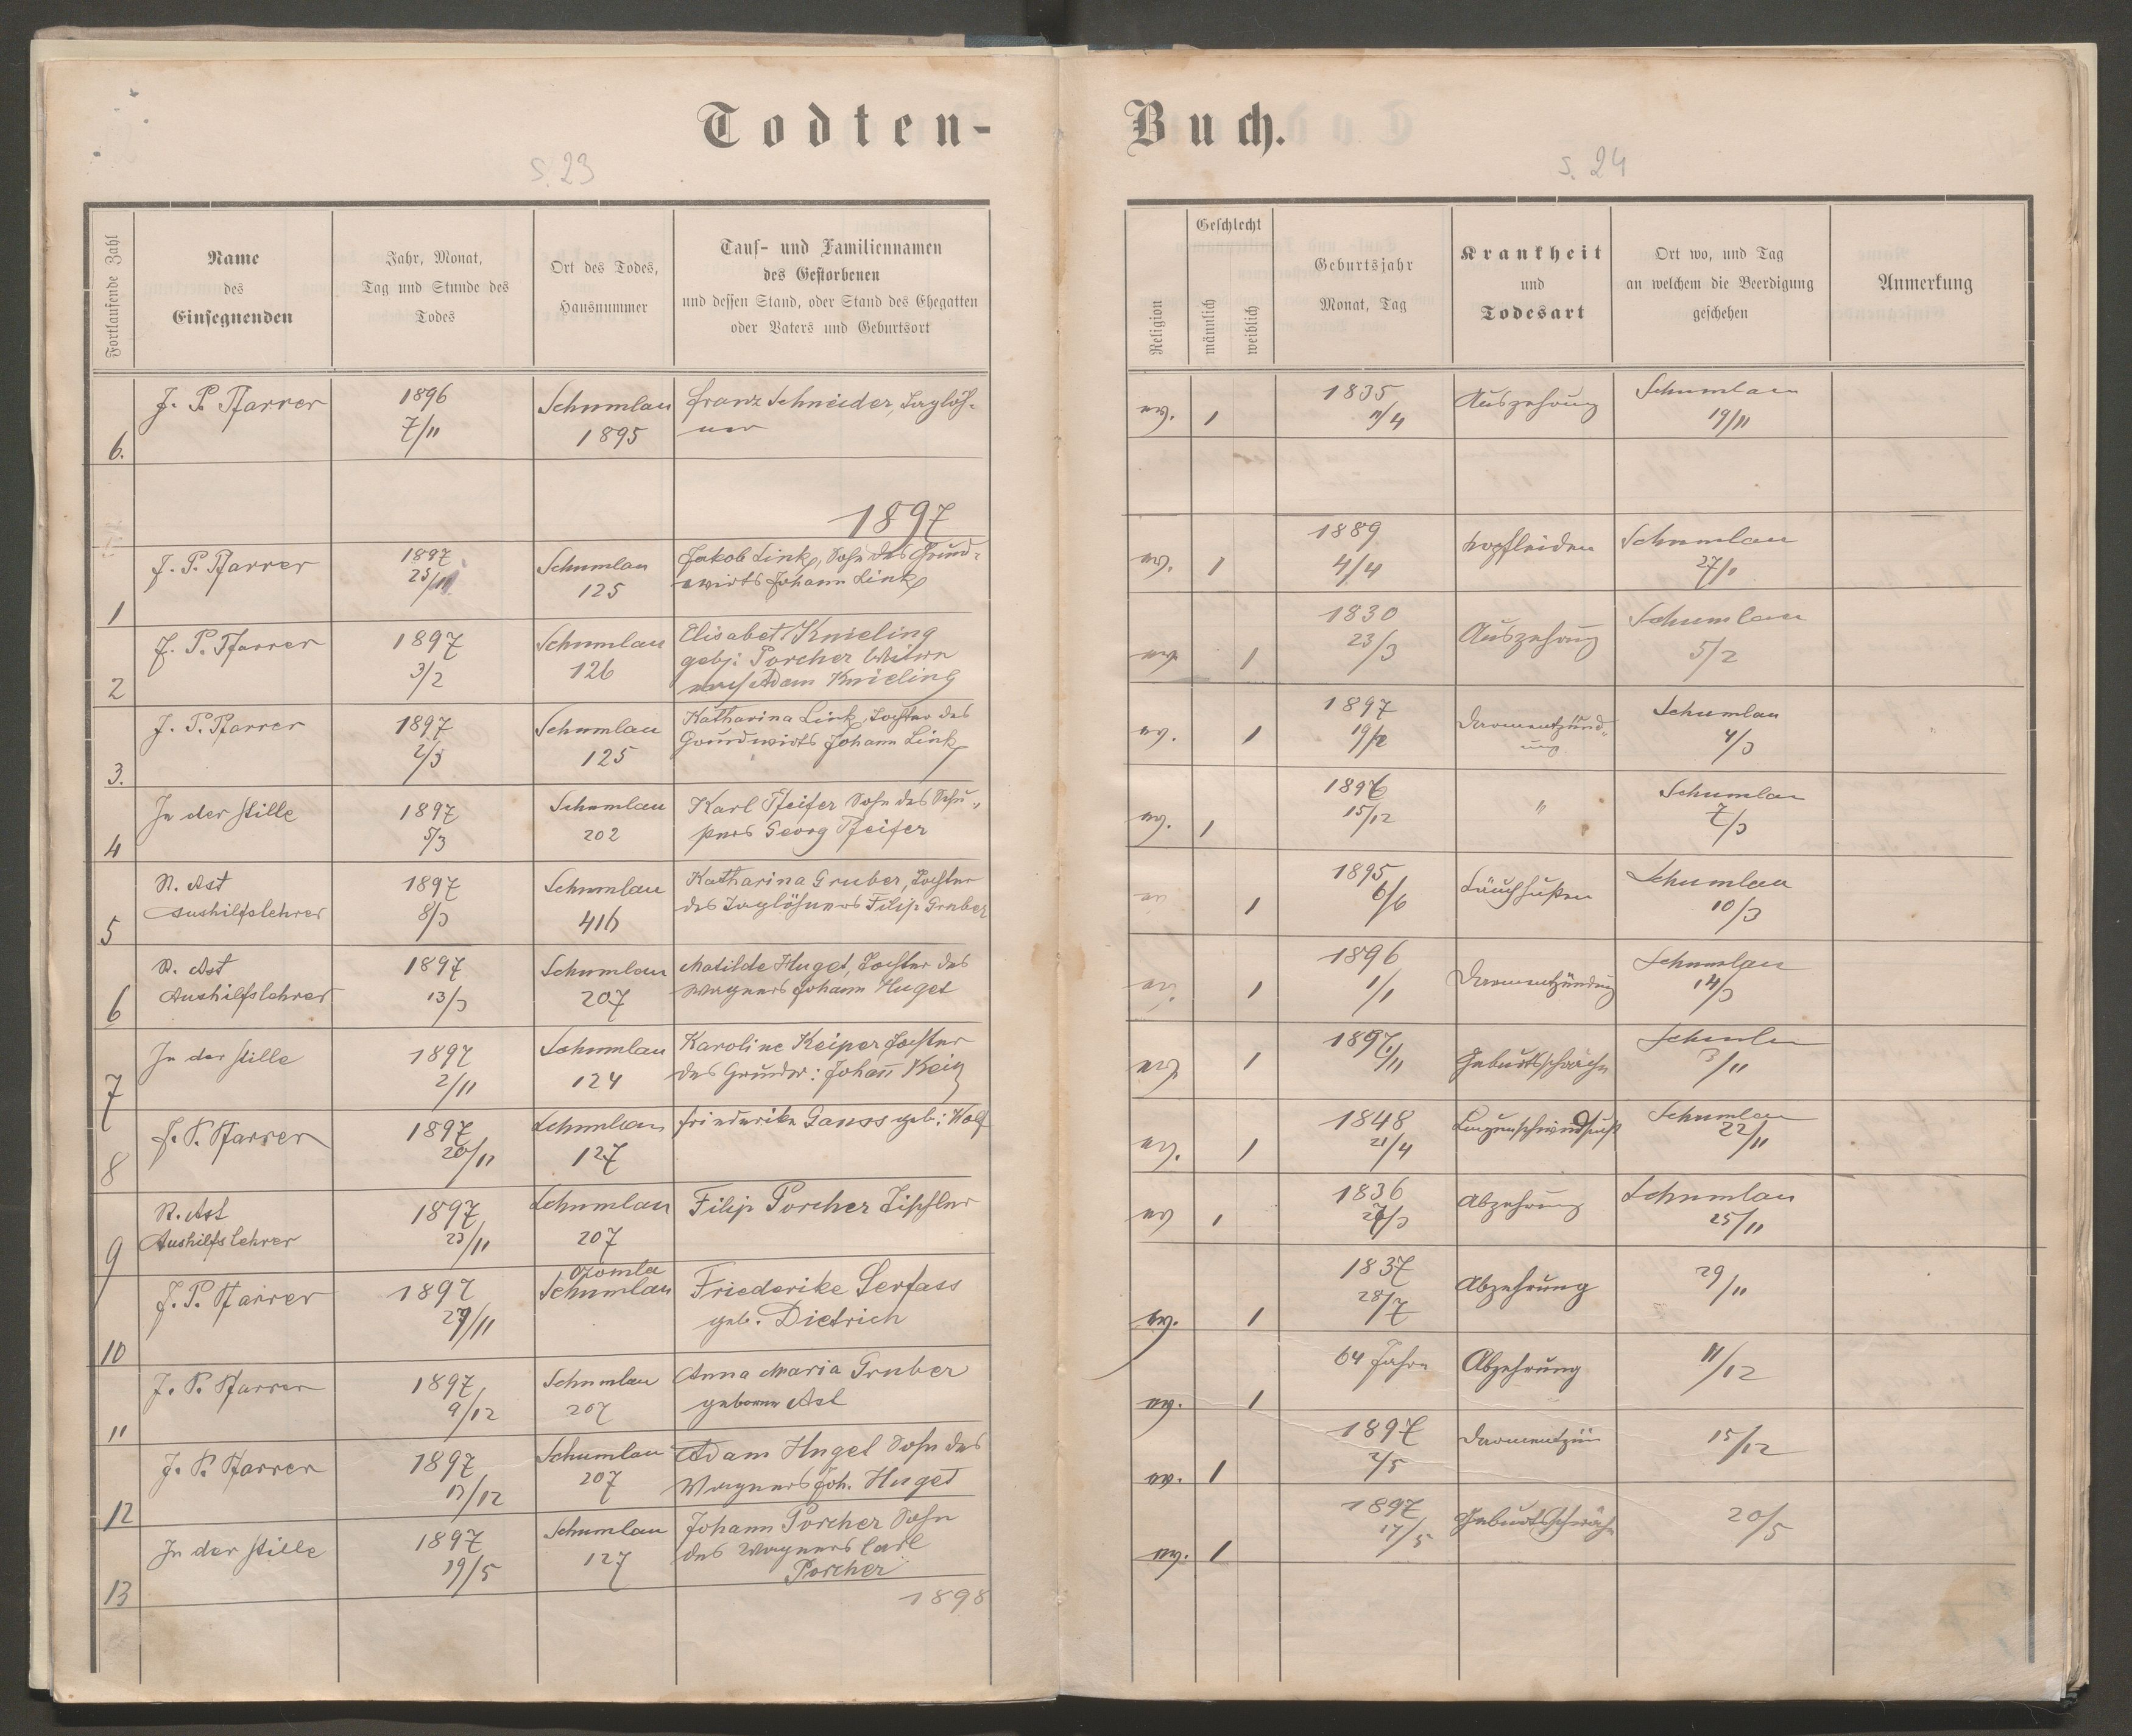 Todten-
Buch.
S. 23
S. 24
Fortlaufende Zahl
Name
des
Einsegnenden
Jahr, Monat,
Tag und Stunde des
Todes
Ort des Todes,
Hausnummer
Tauf- und Familiennamen
des Gestorbenen
und dessen Stand, oder Stand des Ehegatten
oder Vaters und Geburtsort
Religion
Geschlecht
männlich
weiblich
Geburtsjahr
Monat, Tag
Krankheit
und
Todesart
Ort wo, und Tag
an welchem die Beerdigung
geschehen
Anmerkung
6.
J. P. Pfarrer
1896
7/11
Schumlau
1895
Franz Schneider, Taglöh-
ner
ev.
1
1835
4
Auszehrung
Schumlau
19/11
1897
1
J. P. Pfarrer
1897
25/
Schumlau
125
Jakob Link, Sohn des Grund-
wirts Johann Link
ev.
1
1889
4/4
Kopfleiden
Schumlau
27/1
2
J. P. Pfarrer
1897
3/2
Schumlau
126
Elisabet Knieling
geb: Porcher Witwe
nach Adam Knieling
ev
1
1830
23/3
Auszehrung
Schumlau
5/2
3.
J. P. Pfarrer
1897
2/3
Schumlau
125
Katharina Link, Tochter des
Grundwirts Johann Link
ev.
1
1897
19/2
Darmentzünd-
ung
Schumlau
4/3
4
In der Stille
1897
5/3
Schumlau
202
Karl Pfeifer Sohn des Schu-
sters Georg Pfeifer
ev.
1
1896
15/12
"
Schumlau
7/3
5
R. Ast
Aushilfslehrer
1897
8/3
Schumlau
416
Katharina Gruber, Tochter
des Taglöhners Filip Gruber
ev
1
1895
6/6
Schumlau
10/3
6
R. Ast
Aushilfslehrer
1897
13/3
Schumlau
207
Matilde Huget, Tochter des
Wagners Johann Huget
ev
1
1896
1/1
Darmentzündung
Schumlau
14/3
7
In der Stille
1897
2/11
Schumlau
124
Karoline Keiper Tochter
des Grundw: Johann
ev
1
1897
1/11
Geburtsschwäche
3/11
8
J. P. Pfarrer
1897
20/11
Schumlau
127
Friederike Gauss geb: Wolf
ev.
1
1848
21/4
Lungenschwindsucht
Schumlau
22/11
9
R. Ast
Aushilfslehrer
1897
23/11
Schumlau
207
Filip Porcher Tischler
ev
1
1836
/3
Abzehrung
Schumlau
25/11
10
J. P. Pfarrer
1897
27/11
Ozomla
Schumlau
Friederike Serfass
geb. Dietrich
ev.
1
1837
28/7
Abzehrung
29/11
11
J. P. Pfarrer
1897
9/12
Schumlau
207
Anna Maria Gruber
geborene Ast
ev.
1
64 Jahre
Abzehrung
11/12
12
J. P. Pfarrer
1897
13/12
Schumlau
207
Adam Huget Sohn des
Wagners Joh. Huget
ev.
1
1897
2/5
Darmentzün
15/12
13
In der Stille
1897
19/5
Schumlau
127
Johann Porcher Sohn
des Wagners Carl
Porcher
ev.
1
1897
17/5
Geburtsschwäche
20/5
1898